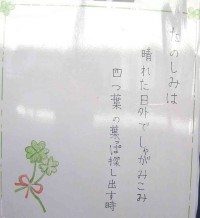 たのしみは
晴れた日外でしゃがみこみ
四つ葉の葉っぱ探し出す時